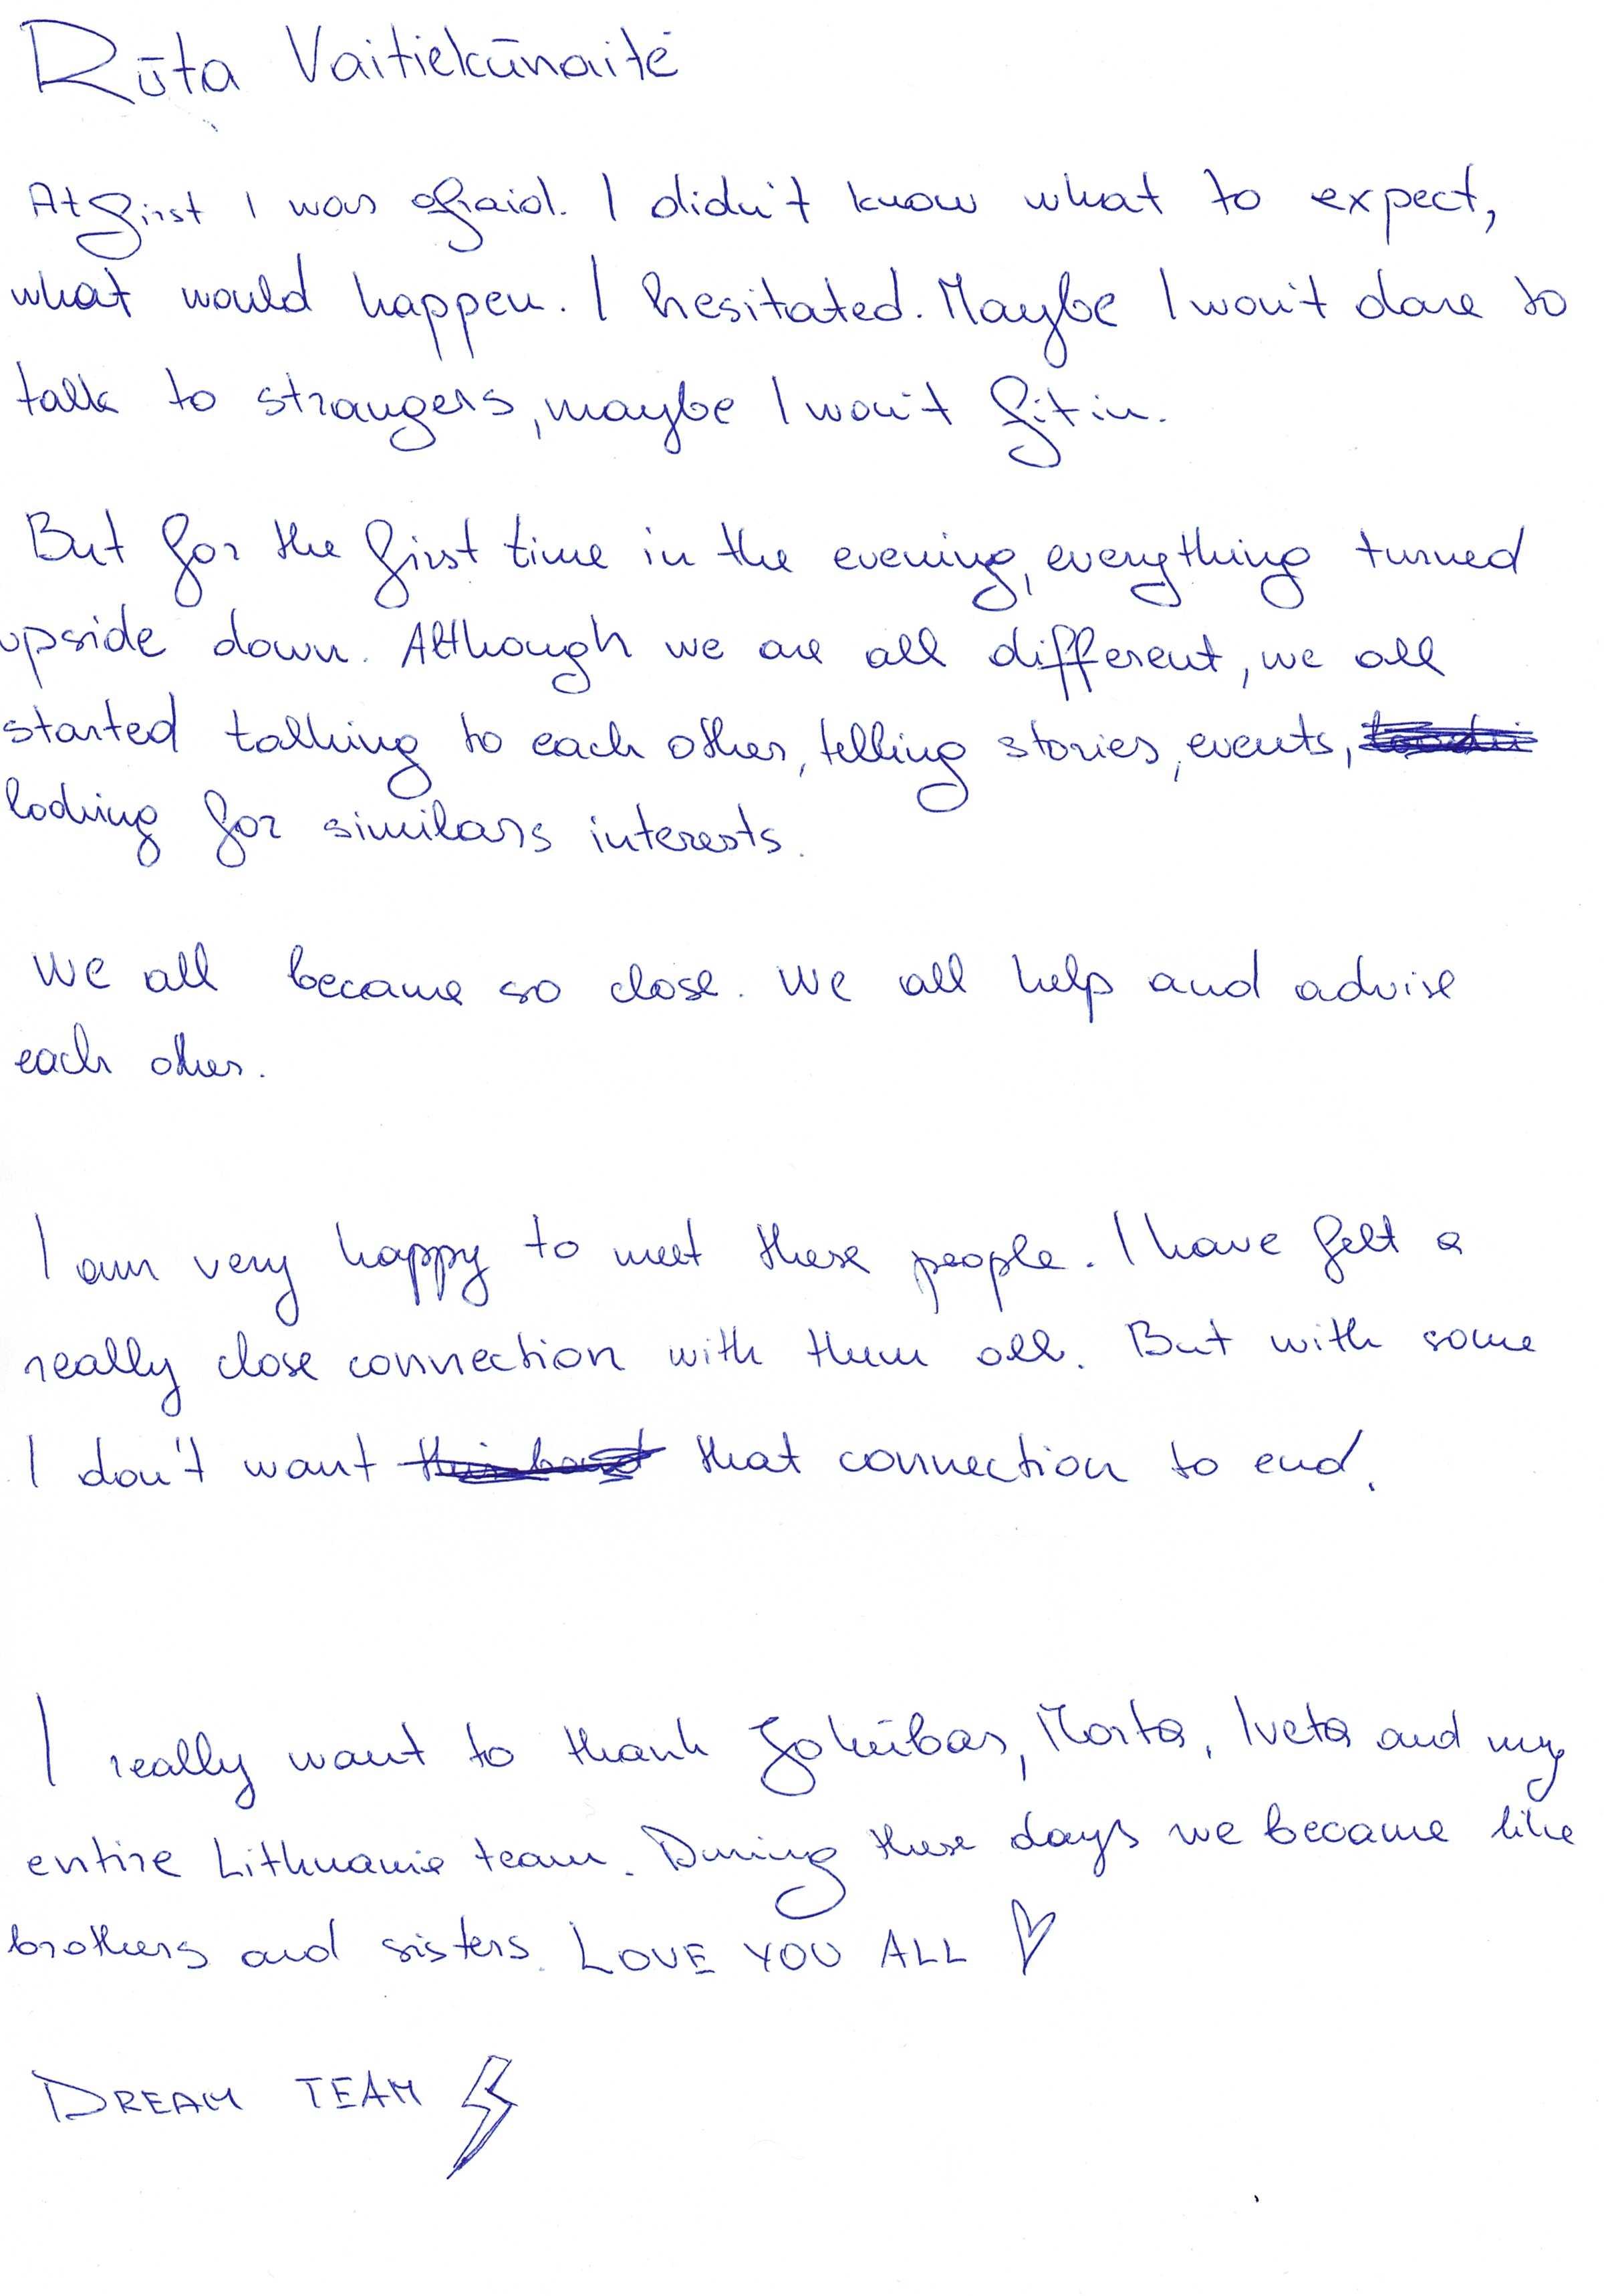 Rūta Vaitiekūnaitė
At first I was afraid. I didn't know what to expect,
what would happen. I hesitated. Maybe I won't dare to
talk to strangers, maybe I won't fit in.
But for the first time in the evening, everything turned
upside down. Although we are all different, we all
started talking to each other, telling stories, events,
looking for similars interests.
We all became so close. We all help and advise
each other.
I am very happy to meet these people. I have felt a
really close connection with them all. But with some
I don't want that connection to end.
I really want to thank Jokūbas, Morta, Iveta and my
entire Lithuania team. During these days we became like
brothers and sisters. LOVE YOU ALL ♡
DREAM TEAM